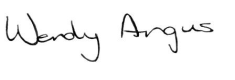 Wendy Angus